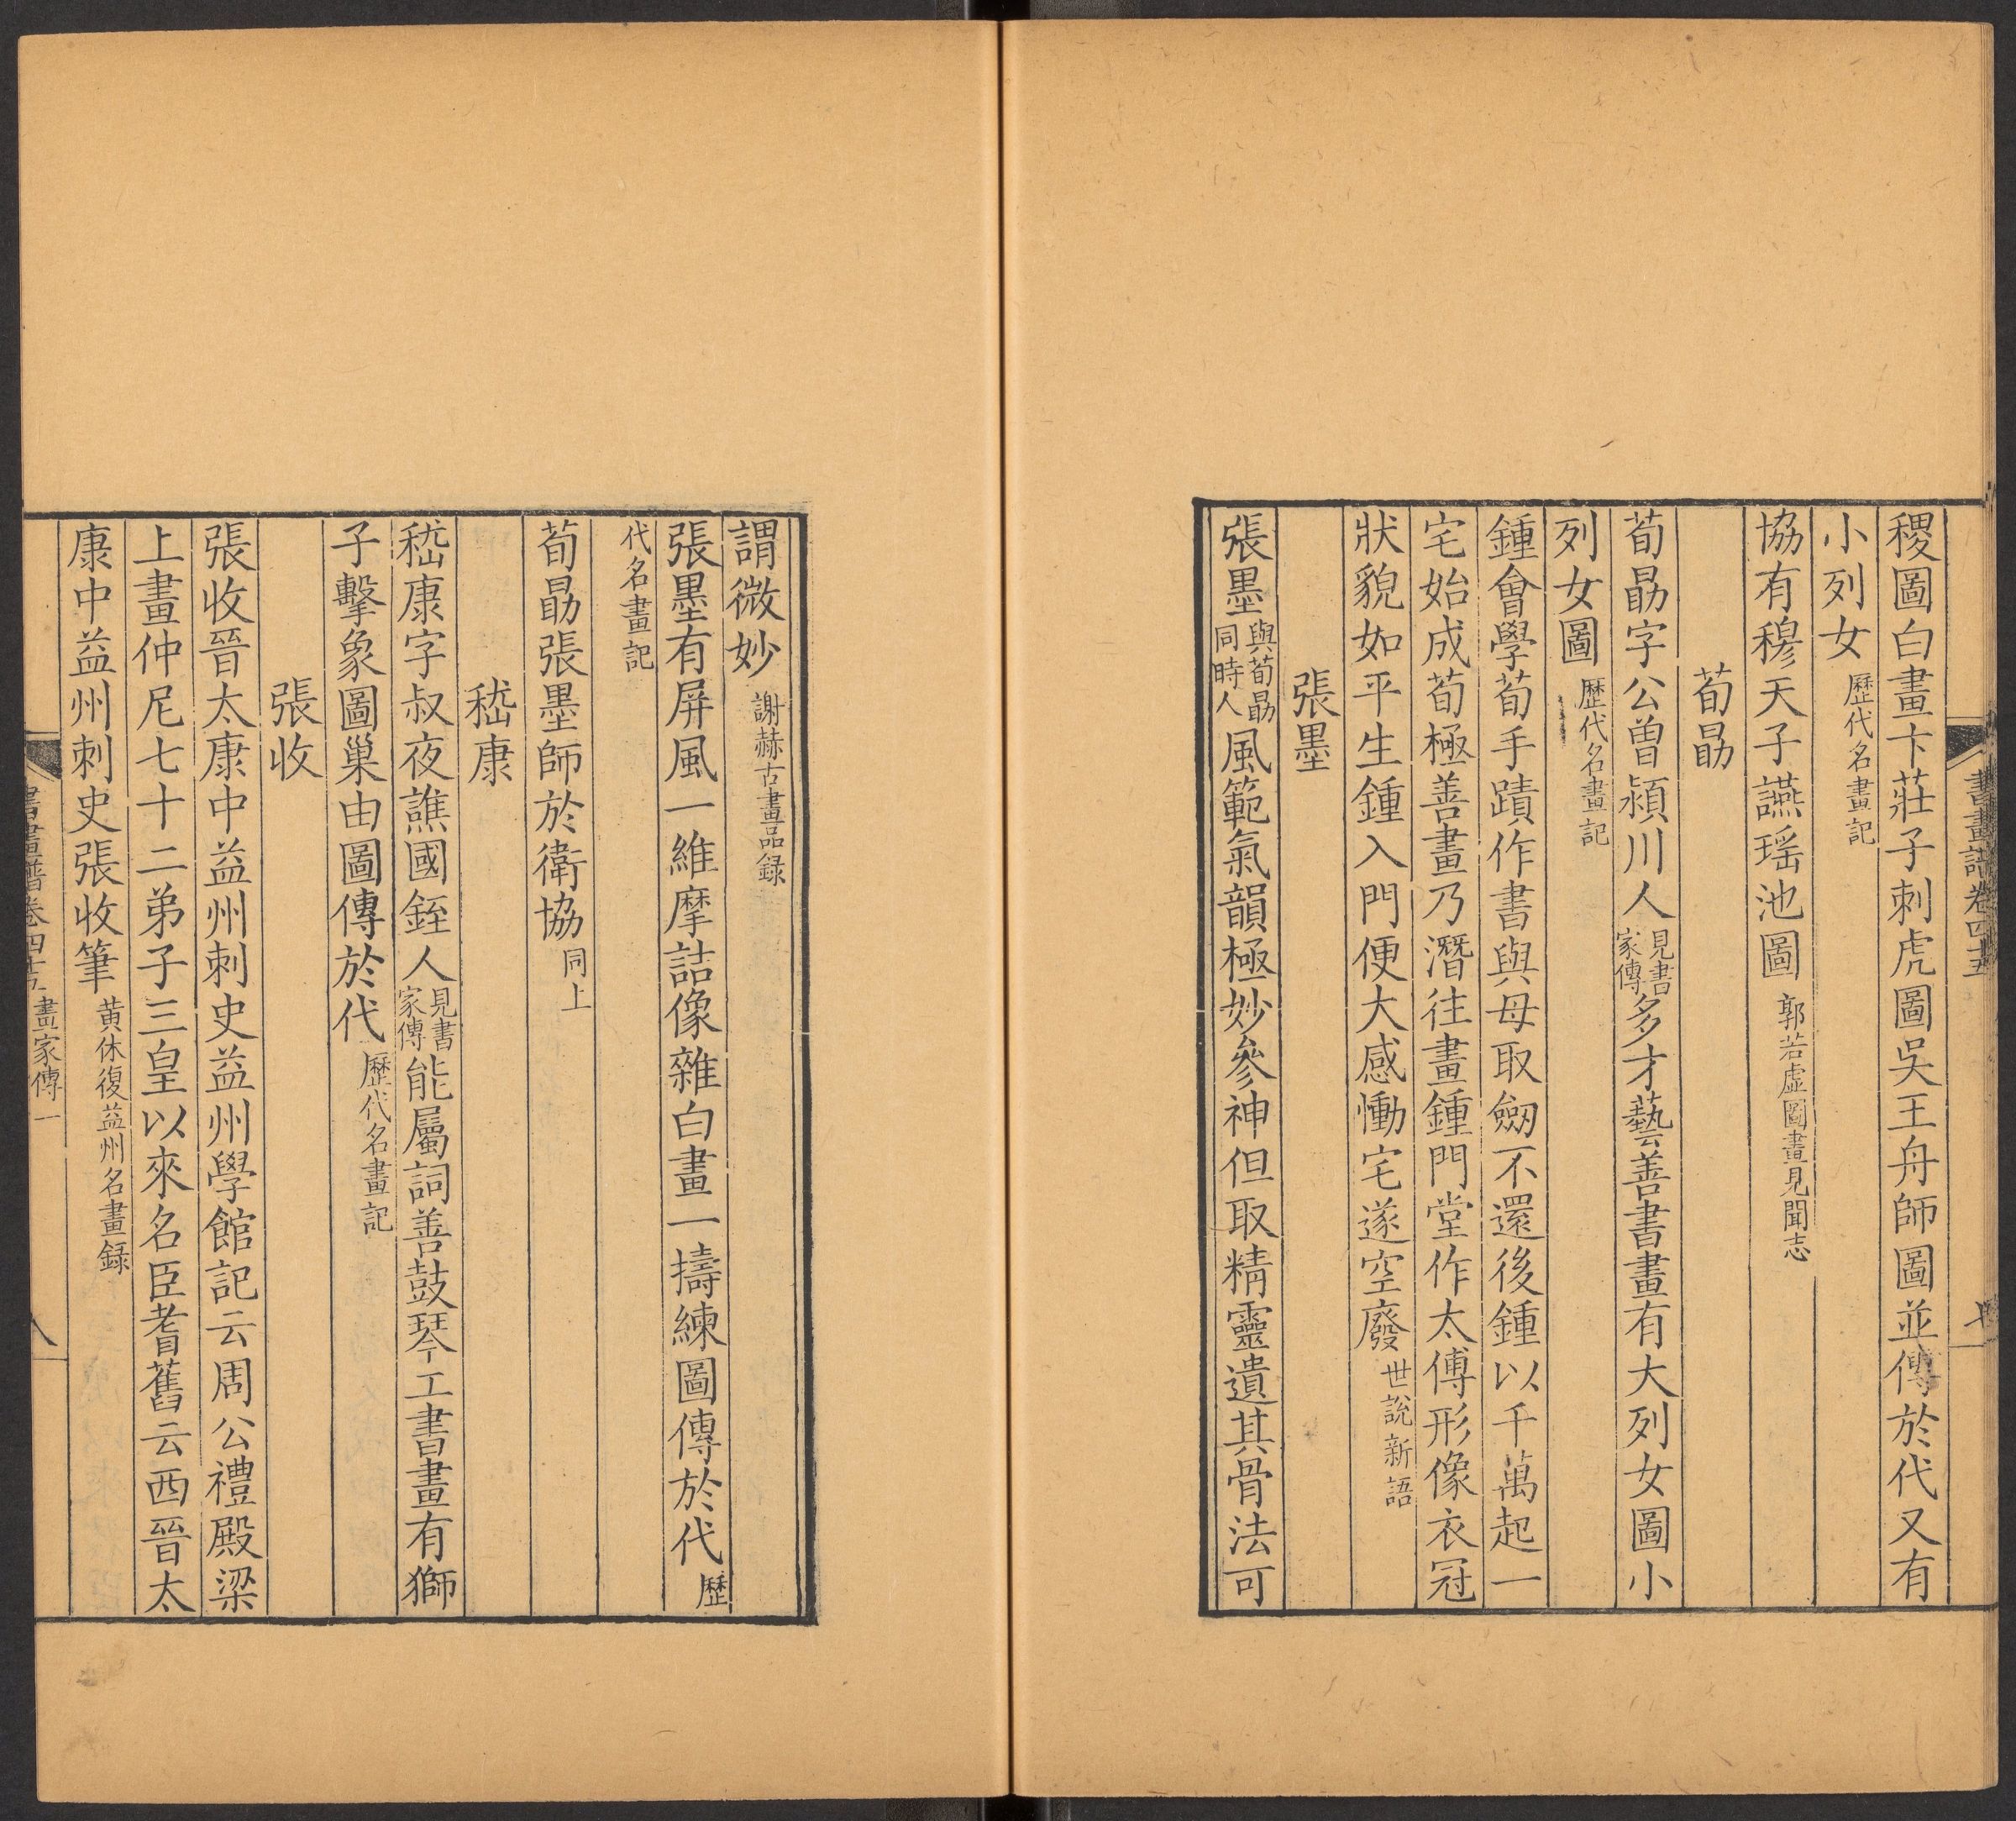 書畫譜卷四十五
七
稷圖白畫卞莊子刺虎圖吳王舟師圖並傳於代又有
小列女歷代名畫記
協有穆天子讌瑶池圖郭若虛圖畫見聞志
荀勗
荀勗字公曾潁川人見書家傳多才藝善書畫有大列女圖小
列女圖歷代名畫記
鍾會學荀手蹟作書與母取劒不還後鍾以千萬起一
宅始成荀極善畫乃潛往畫鍾門堂作太傅形像衣冠
狀貌如平生鍾入門便大感慟宅遂空廢世說新語
張墨
張墨與荀勗同時人風範氣韻極妙參神但取精靈遺其骨法可
謂微妙謝赫古畫品録
張墨有屏風一維摩詰像雜白畫一擣練圖傳於代歷
代名畫記
荀勗張墨師於衛協同上
嵇康
嵇康字叔夜譙國銍人見書家傳能屬詞善鼓琴工書畫有獅
子擊象圖巢由圖傳於代歷代名畫記
張收
張收晉太康中益州刺史益州學館記云周公禮殿梁
上畫仲尼七十二弟子三皇以來名臣耆舊云西晉太
康中益州刺史張收筆黄休復益州名畫録
書畫譜卷四十五 畫家傳一
八